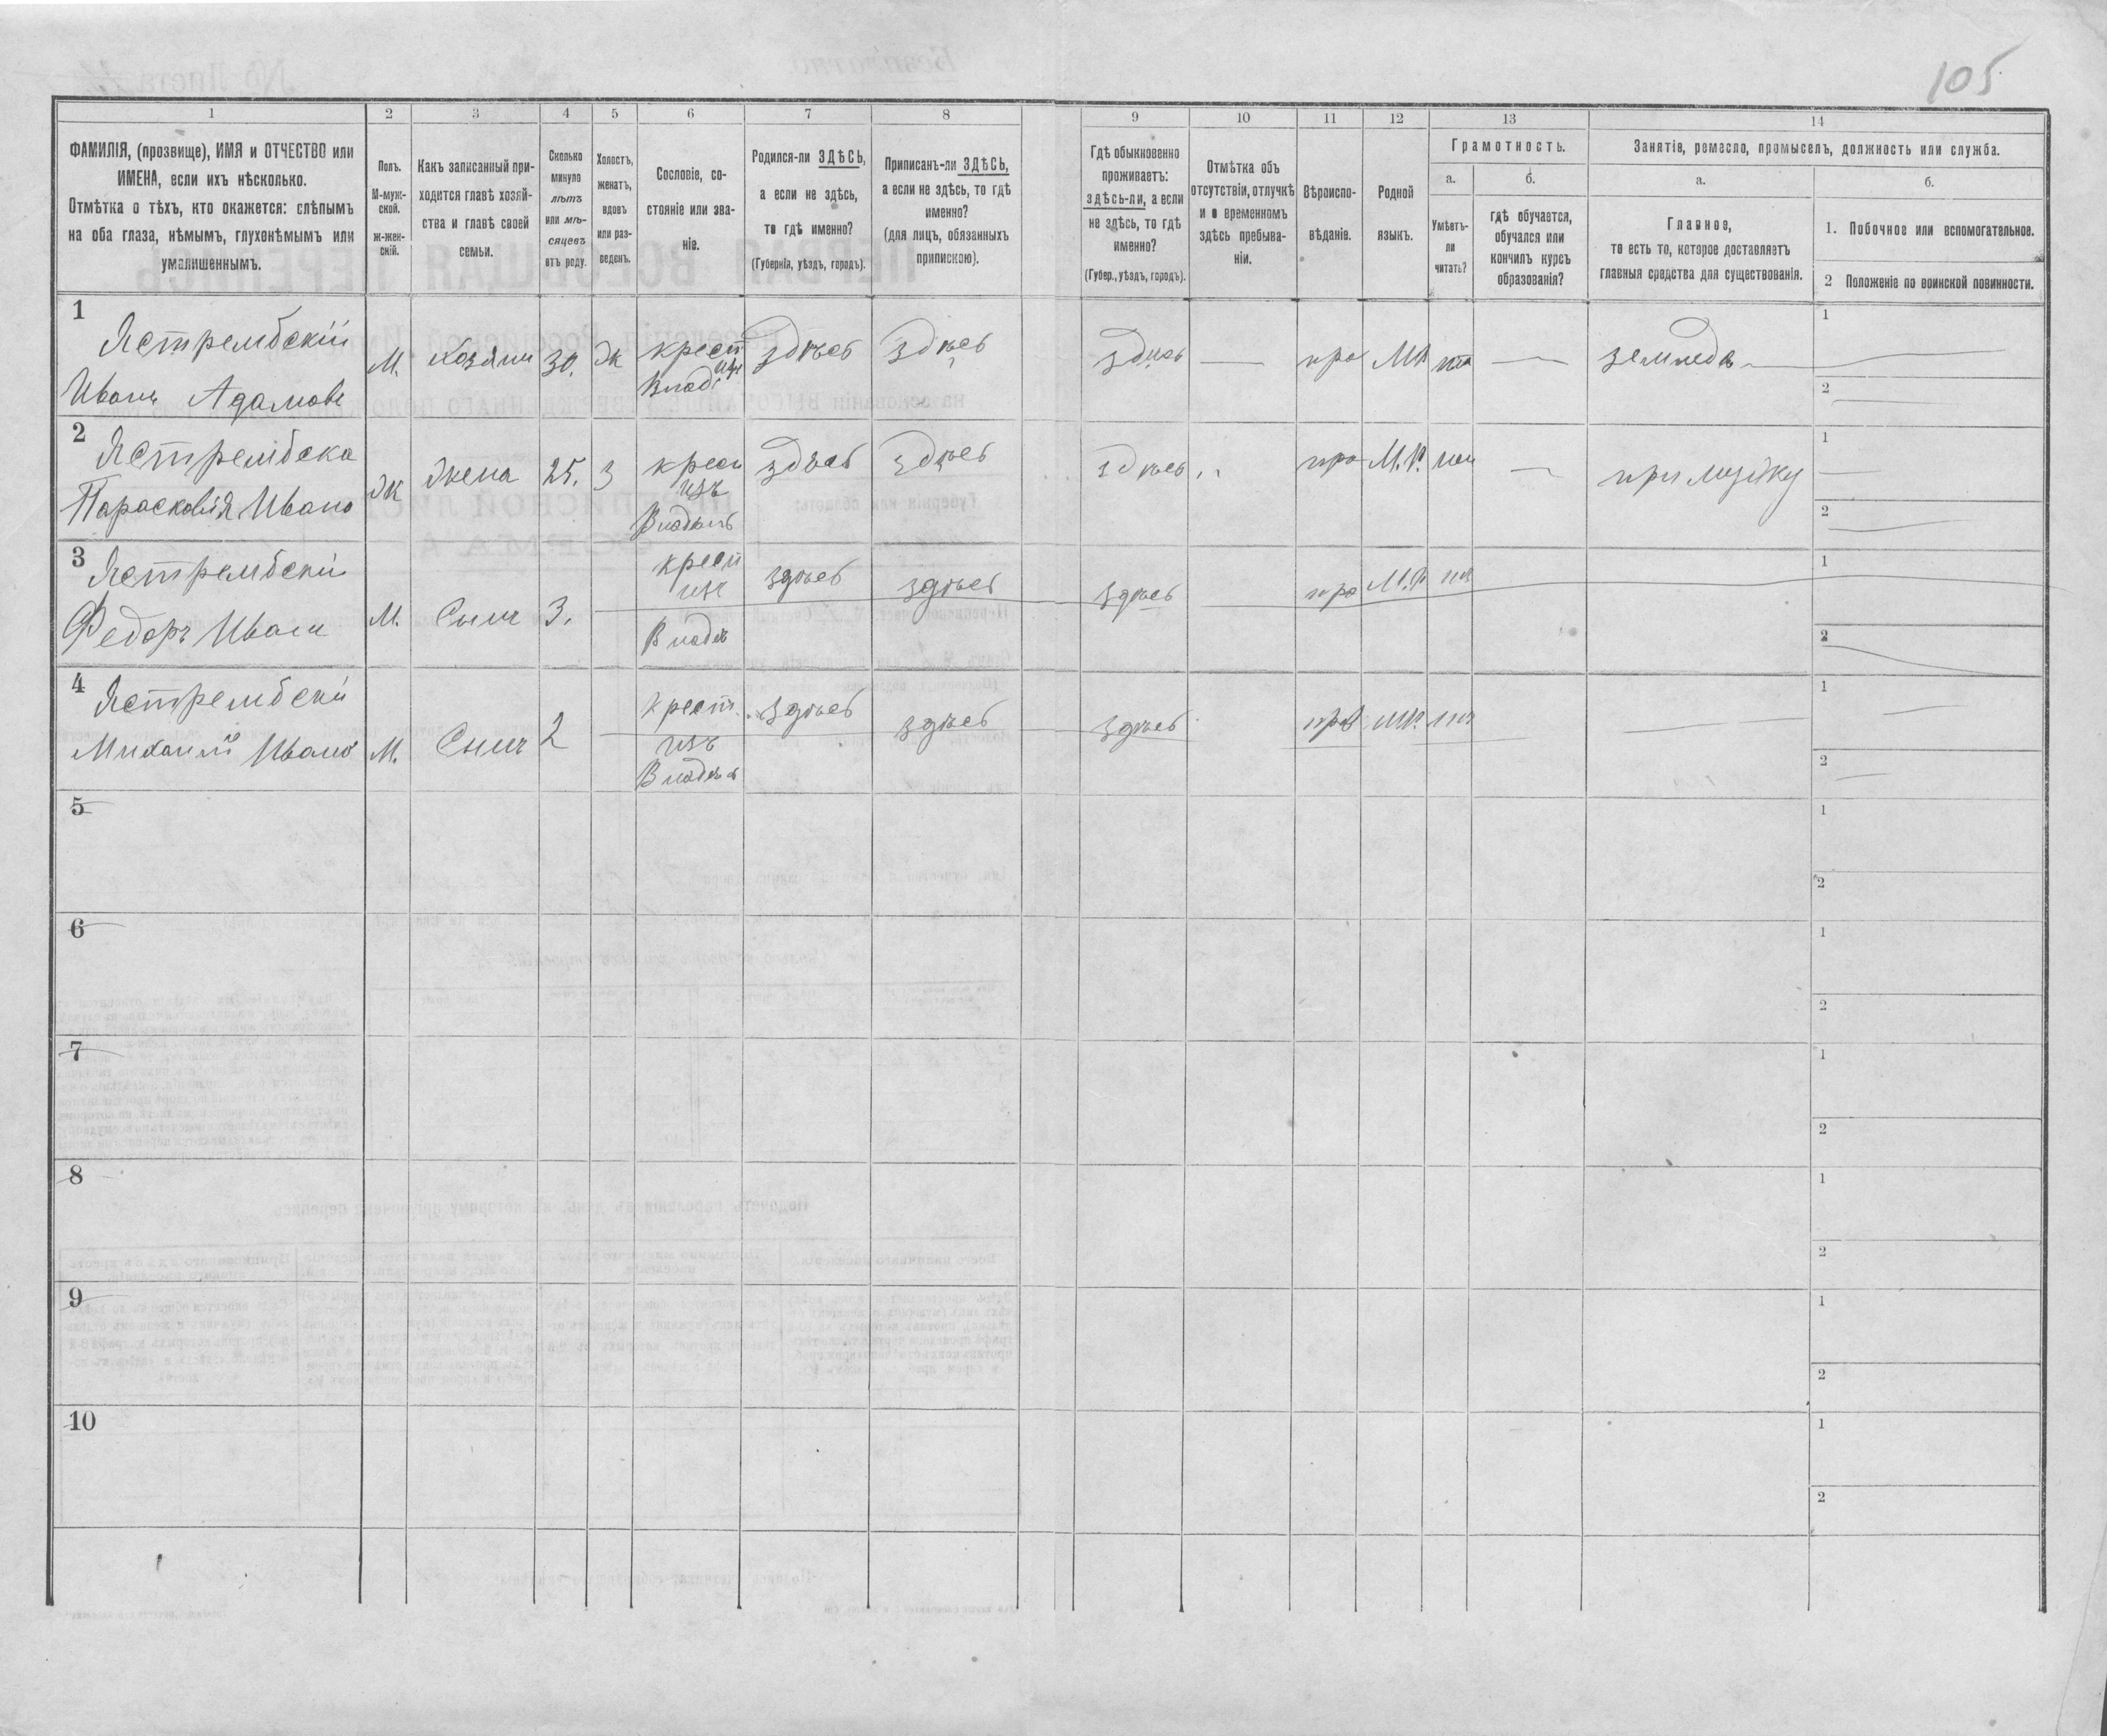 105
1 2 3 4 5 6 7 8 9 10 11 12 13 14
ФАМИЛІЯ, (прозвище), ИМЯ и ОТЧЕСТВО или
ИМЕНА, если ихъ нѣсколько.
Отмѣтка о тѣхъ, кто окажется: слѣпымъ
на оба глаза, нѣмымъ, глухонѣмымъ или
умалишеннымъ.
Полъ.
М-муж-
ской.
ж-жен-
скій.
Какъ записанный при-
ходится главѣ хозяй-
ства и главѣ своей
семьи.
Сколько
минуло
лѣтъ
или мѣ-
сяцевъ
отъ роду.
Холостъ,
женатъ,
вдовъ
или раз-
веденъ.
Сословіе, со-
стояніе или зва-
ніе.
Родился-ли ЗДѢСЬ,
а если не здѣсь,
то гдѣ именно?
(Губернія, уѣздъ, городъ).
Приписанъ-ли ЗДѢСЬ,
а если не здѣсь, то гдѣ
именно?
(для лицъ, обязанныхъ
припискою).
Гдѣ обыкновенно
проживаетъ:
ЗДѢСЬ-ЛИ, а если
не здѣсь, то гдѣ
именно?
(Губер., уѣздъ, городъ).
Отмѣтка объ
отсутствіи, отлучкѣ
и о временномъ
здѣсь пребыва-
ніи.
Вѣроиспо-
вѣданіе.
Родной
языкъ.
Грамотность.
а.
Умѣетъ-
ли
читать?
б.
гдѣ обучается,
обучался или
кончилъ курсъ
образованія?
Занятіе, ремесло, промыселъ, должность или служба.
а.
Главное,
то есть то, которое доставляетъ
главныя средства для существованія.
б.
1. Побочное или вспомогательное.
2 Положеніе по воинской повинности.
1
Ястрембскій
Иванъ Адамовъ
М. Хозяин 30. ж
крест
изъ
здѣсь здѣсь здѣсь — пра МР — земледѣ
1
2
2
Ястрембска
Парасковія Ивано
Ж Жена 25. З
крест
изъ
здѣсь здѣсь здѣсь пра М.Р. — при мужу
1
2
3
Ястрембскій
Федоръ Иван
М. Сынъ 3.
крест
изъ
здѣсь здѣсь здѣсь пра М.Р.
1
2
4
Ястрембскій
Михаилъ Ивано
М. Сынъ 2
крест.
изъ
здѣсь здѣсь здѣсь прав МР.
1
2
5
1
2
6
1
2
7
1
2
8
1
2
9
1
2
10
1
2